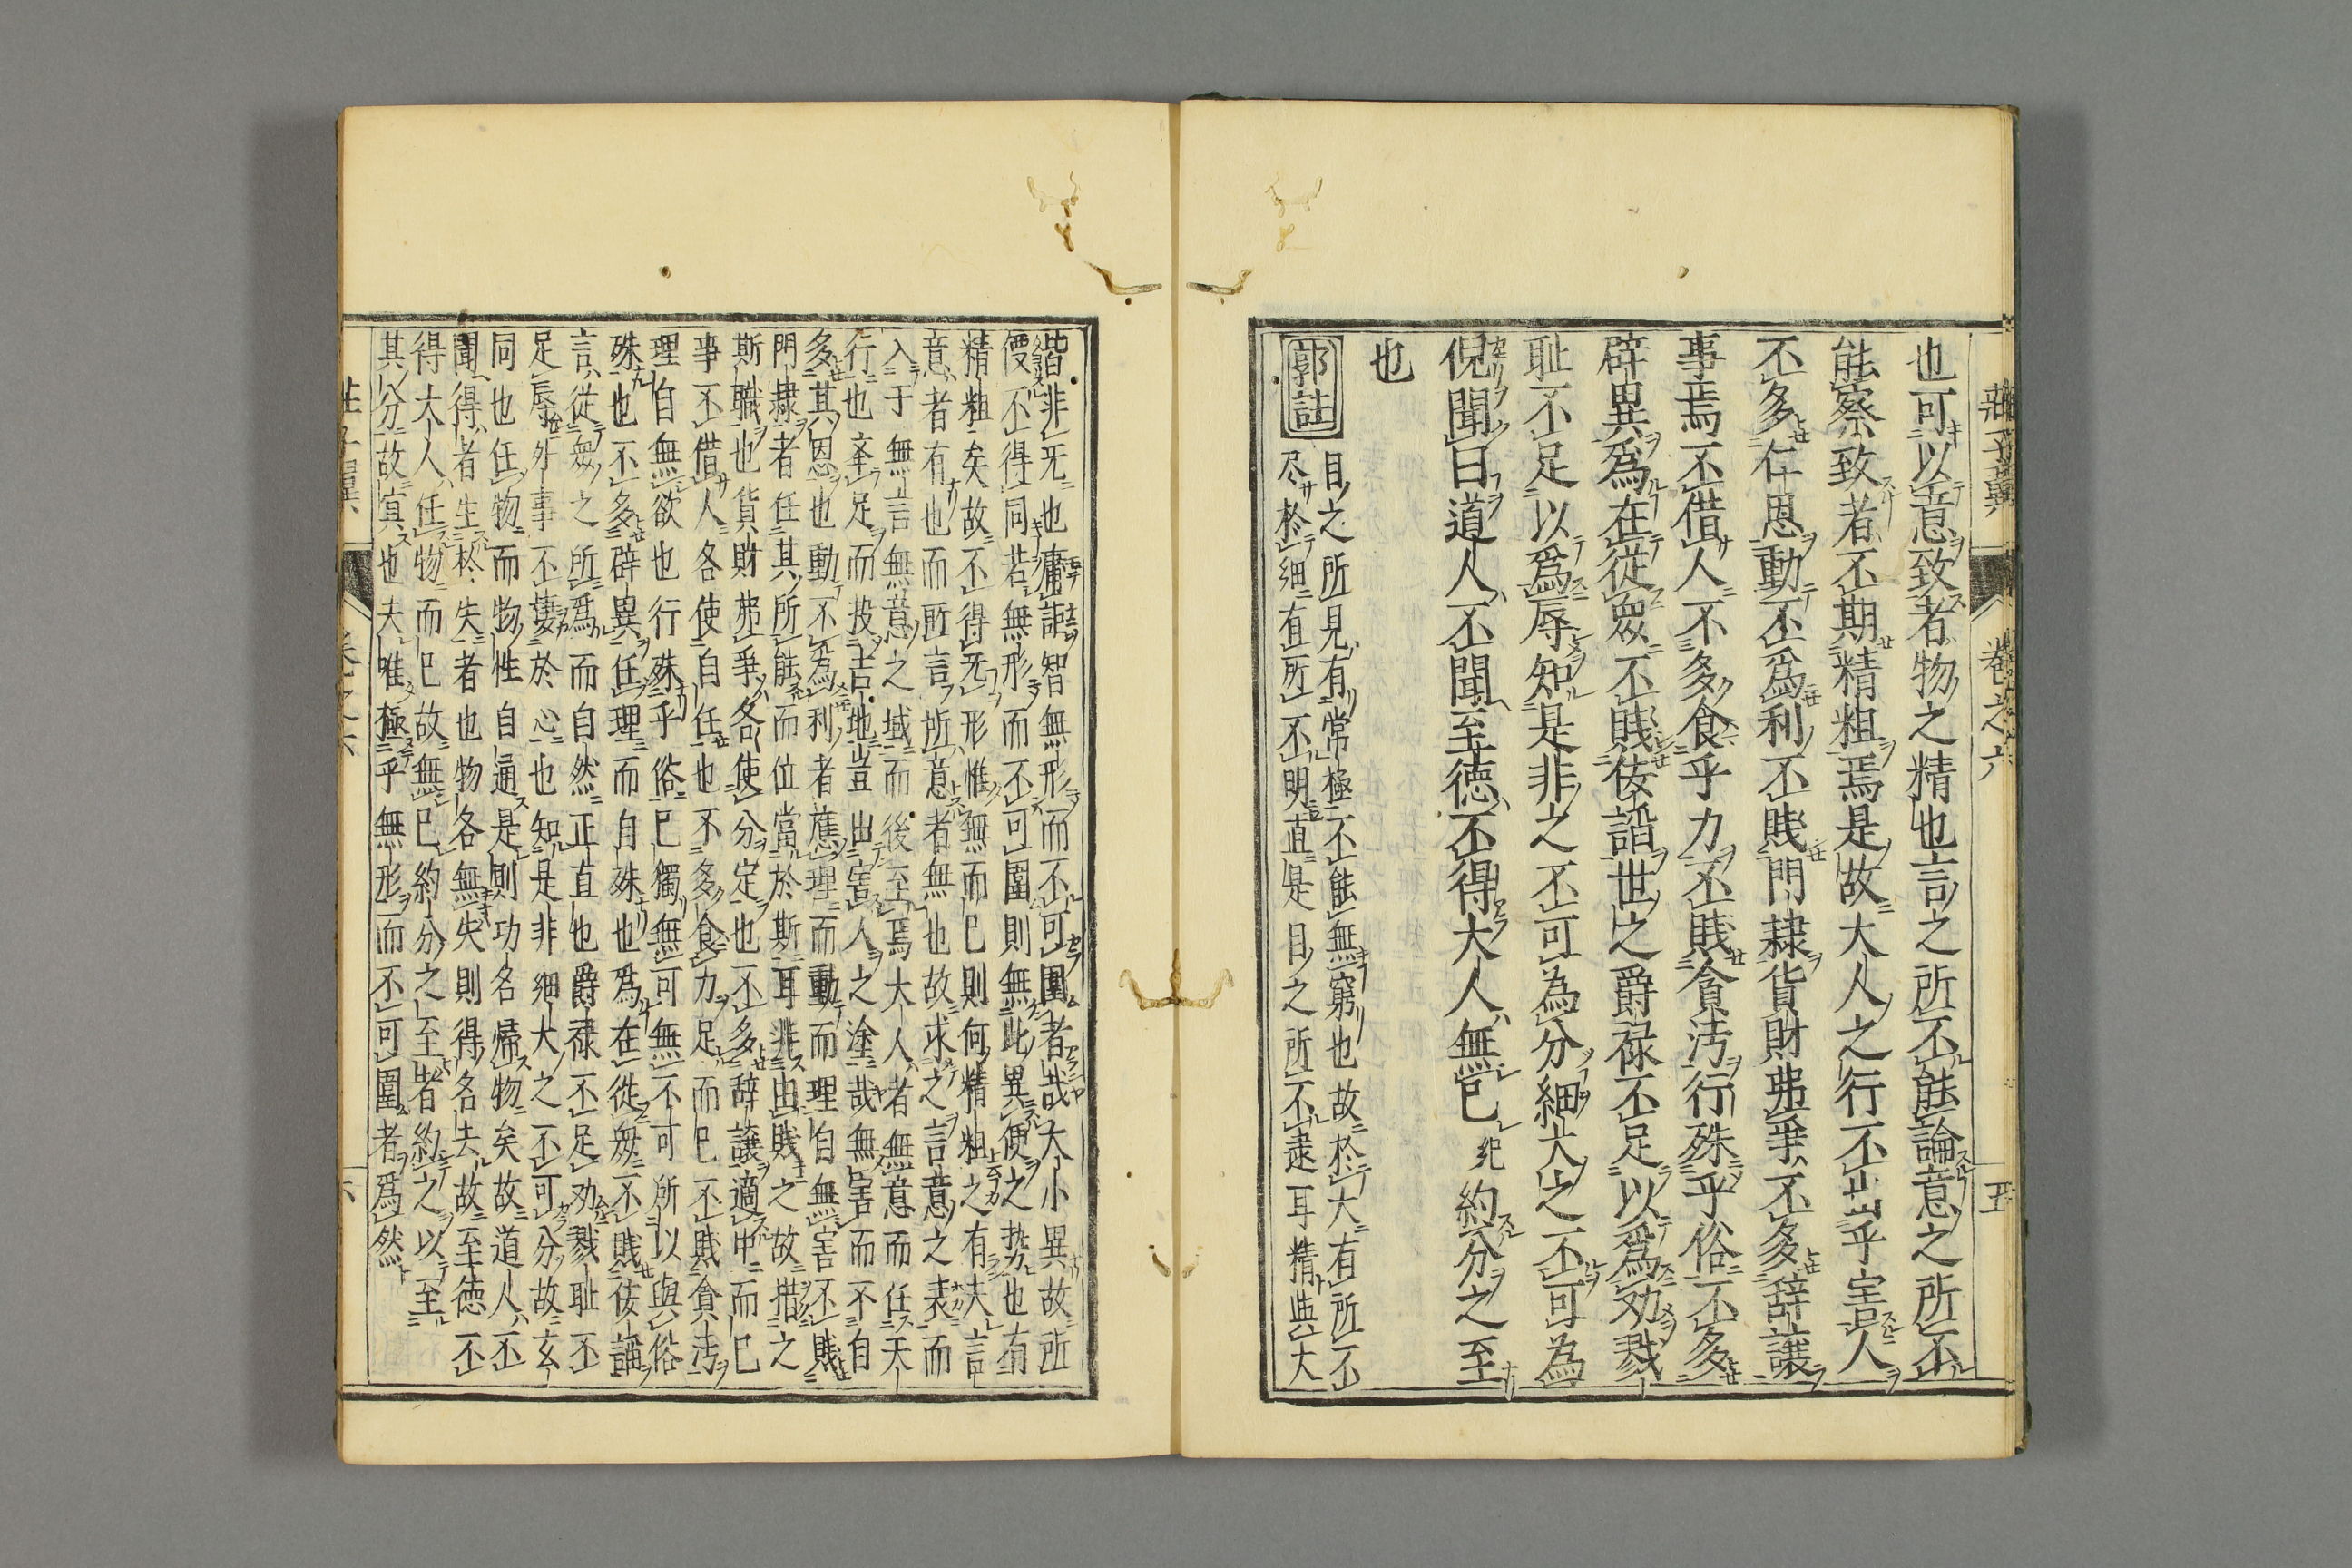 莊子翼 卷之六 五
也可以意致者物之精也言之所不能論意之所不
能察致者不期精粗焉是故大人之行不出乎害人
不多仁恩動不爲利不賤門隸貨財弗爭不多辭讓
事焉不借人不多食乎力不賤貪汚行殊乎俗不多
辟異爲在從衆不賤佞謟世之爵禄不足以爲劝戮
耻不足以爲辱知是非之不可為分細大之不可為
倪聞曰道人不聞至徳不得大人無已 約分之至
也
郭註
目之所見有常極不能無窮也故於大有所不
尽於細有所不明直是目之所不逮耳精與大
皆非无也庸詎智無形而不可圍者哉大小異故所
便不得同若無形而不可圍則無此異便之势也有
精粗矣故不得无形惟無而已則何精粗之有夫言
意者有也而所言所意者無也故求之言意之表而
入于無言無意之域而後至焉大人者無意而任天
行也牽足而投吉地豈出害人之塗哉無害而不自
多其恩也動不為利者應理而動而理自無害不賤
門隸者任其所能而位當於斯耳非由賤之故措之
斯職也貨財弗爭各使分定也不多辞讓適中而已
事不借人各使自任也不多食力足而已不賤貪汚
理自無欲也行殊乎俗已獨無可無不可所以與俗
殊也不多辟異任理而自殊也爲在從衆不賤佞謟
言從衆之所爲而自然正直也爵禄不足劝戮耻不
足辱外事不棲於心也知是非細大之不可分故玄
同也任物而物性自通是則功名歸物矣故道人不
聞得者生於失者也物各無失則得名去故至徳不
得大人任物而已故無已約分之至者約之以至
其分故寘也夫唯極乎無形而不可圍者爲然